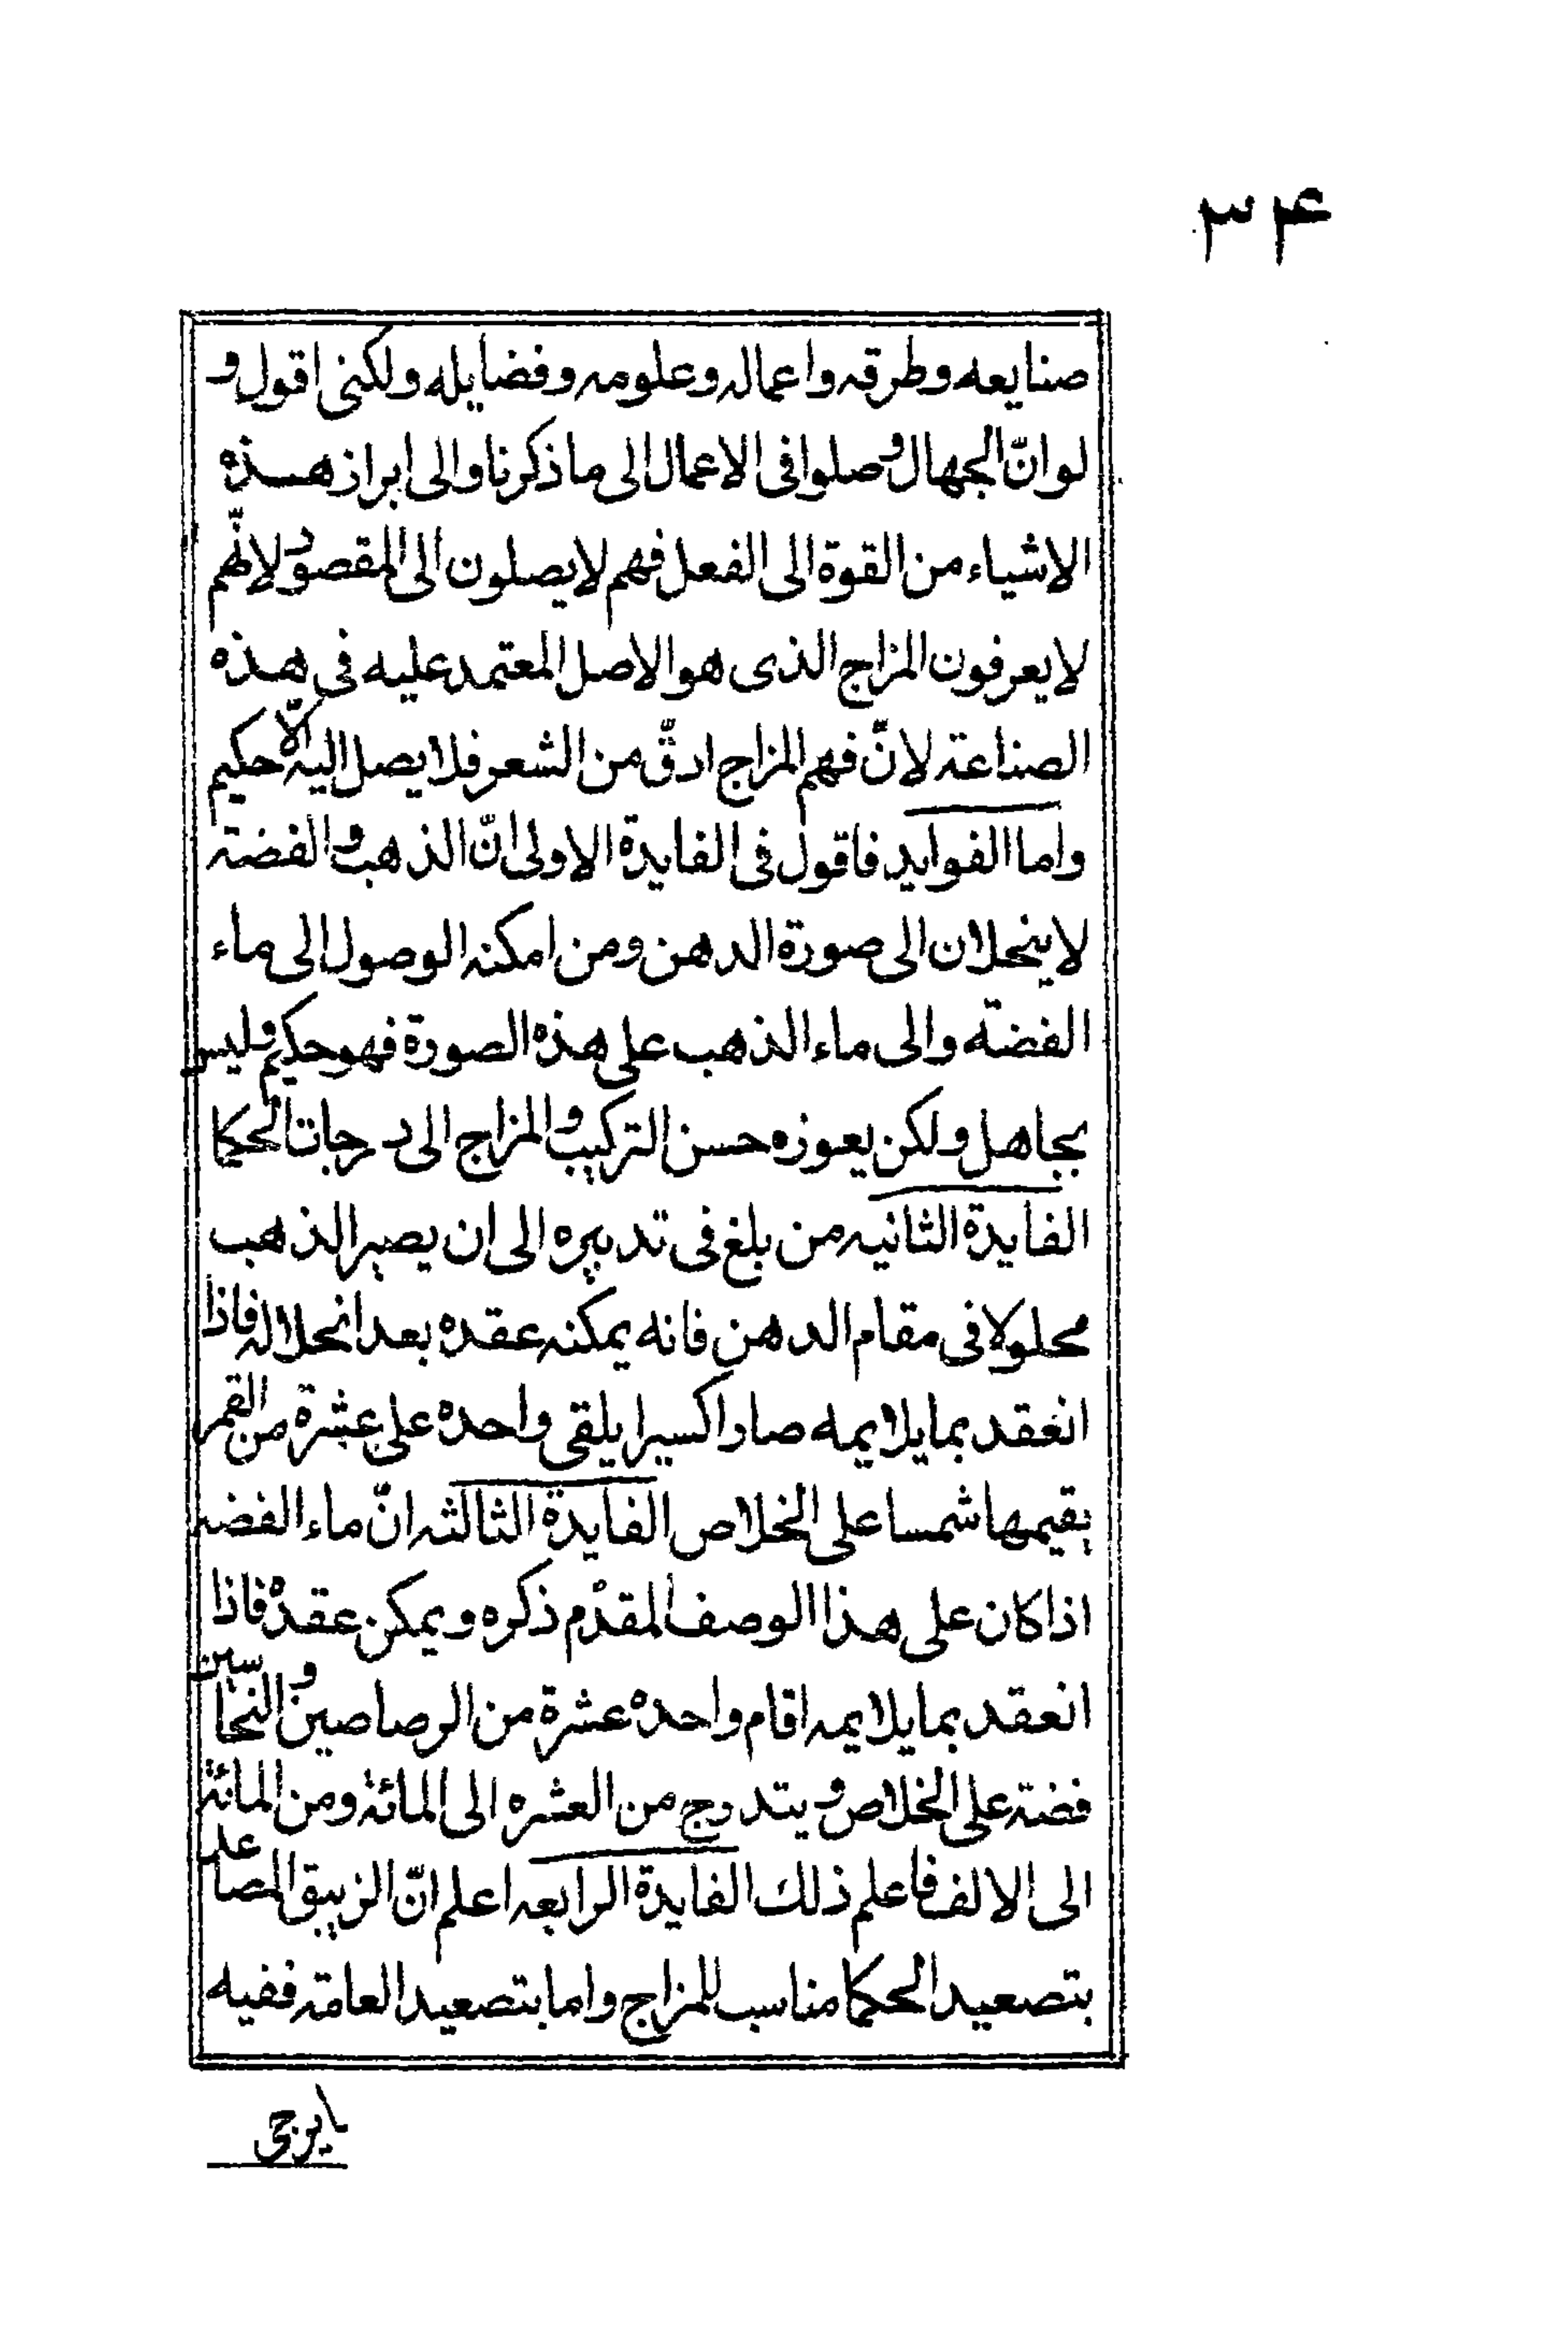 ۳۴
صنايعه وطرقه واعماله وعلومه وفضايله ولكنى اقول و
لو انّ الجهال وصلوا فى الاعمال الى ما ذكرنا والى ابراز هذه
الاشياء من القوة الى الفعل فهم لا يصلون الى المقصود لانّهم
لا يعرفون المزاج الذى هو الاصل المعتمد عليه فى هذه
الصناعة لانّ فهم المزاج ادقّ من الشعر فلا يصل اليه الّا حكيم
واما الفوايد فاقول فى الفايدة الاولى انّ الذهب والفضة
لا ينحلان الى صورة الدهن ومن امكنه الوصول الى ماء
الفضة والى ماء الذهب على هذه الصورة فهو حكيم وليس
بجاهل ولكن يعوزه حسن التركيب والمزاج الى درجات الحكما
الفايدة الثانيه من بلغ فى تدبيره الى ان يصير الذهب
محلولا فى مقام الدهن فانه يمكنه عقده بعد انحلاله فاذا
انعقد بما يلايمه صار اكسيرا يلقى واحده على عشرة من القمر
يقيمها شمسا على الخلاص الفايدة الثالثه انّ ماء الفضه
اذا كان على هذا الوصف المقدم ذكره ويمكن عقده فاذا
انعقد بما يلايمه اقام واحده عشرة من الرصاصين والنحاسين
فضة على الخلاص ويتدرج من العشره الى المائة ومن المائة
الى الالف فاعلم ذلك الفايدة الرابعه اعلم انّ الزيبق المصاعد
بتصعيد الحكما مناسب للمزاج واما بتصعيد العامة ففيه